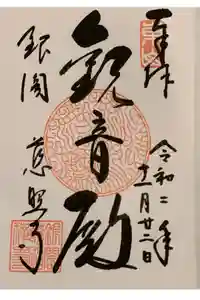 奉拝
令和二年
十一月廿二日
観音殿
銀閣 慈照寺